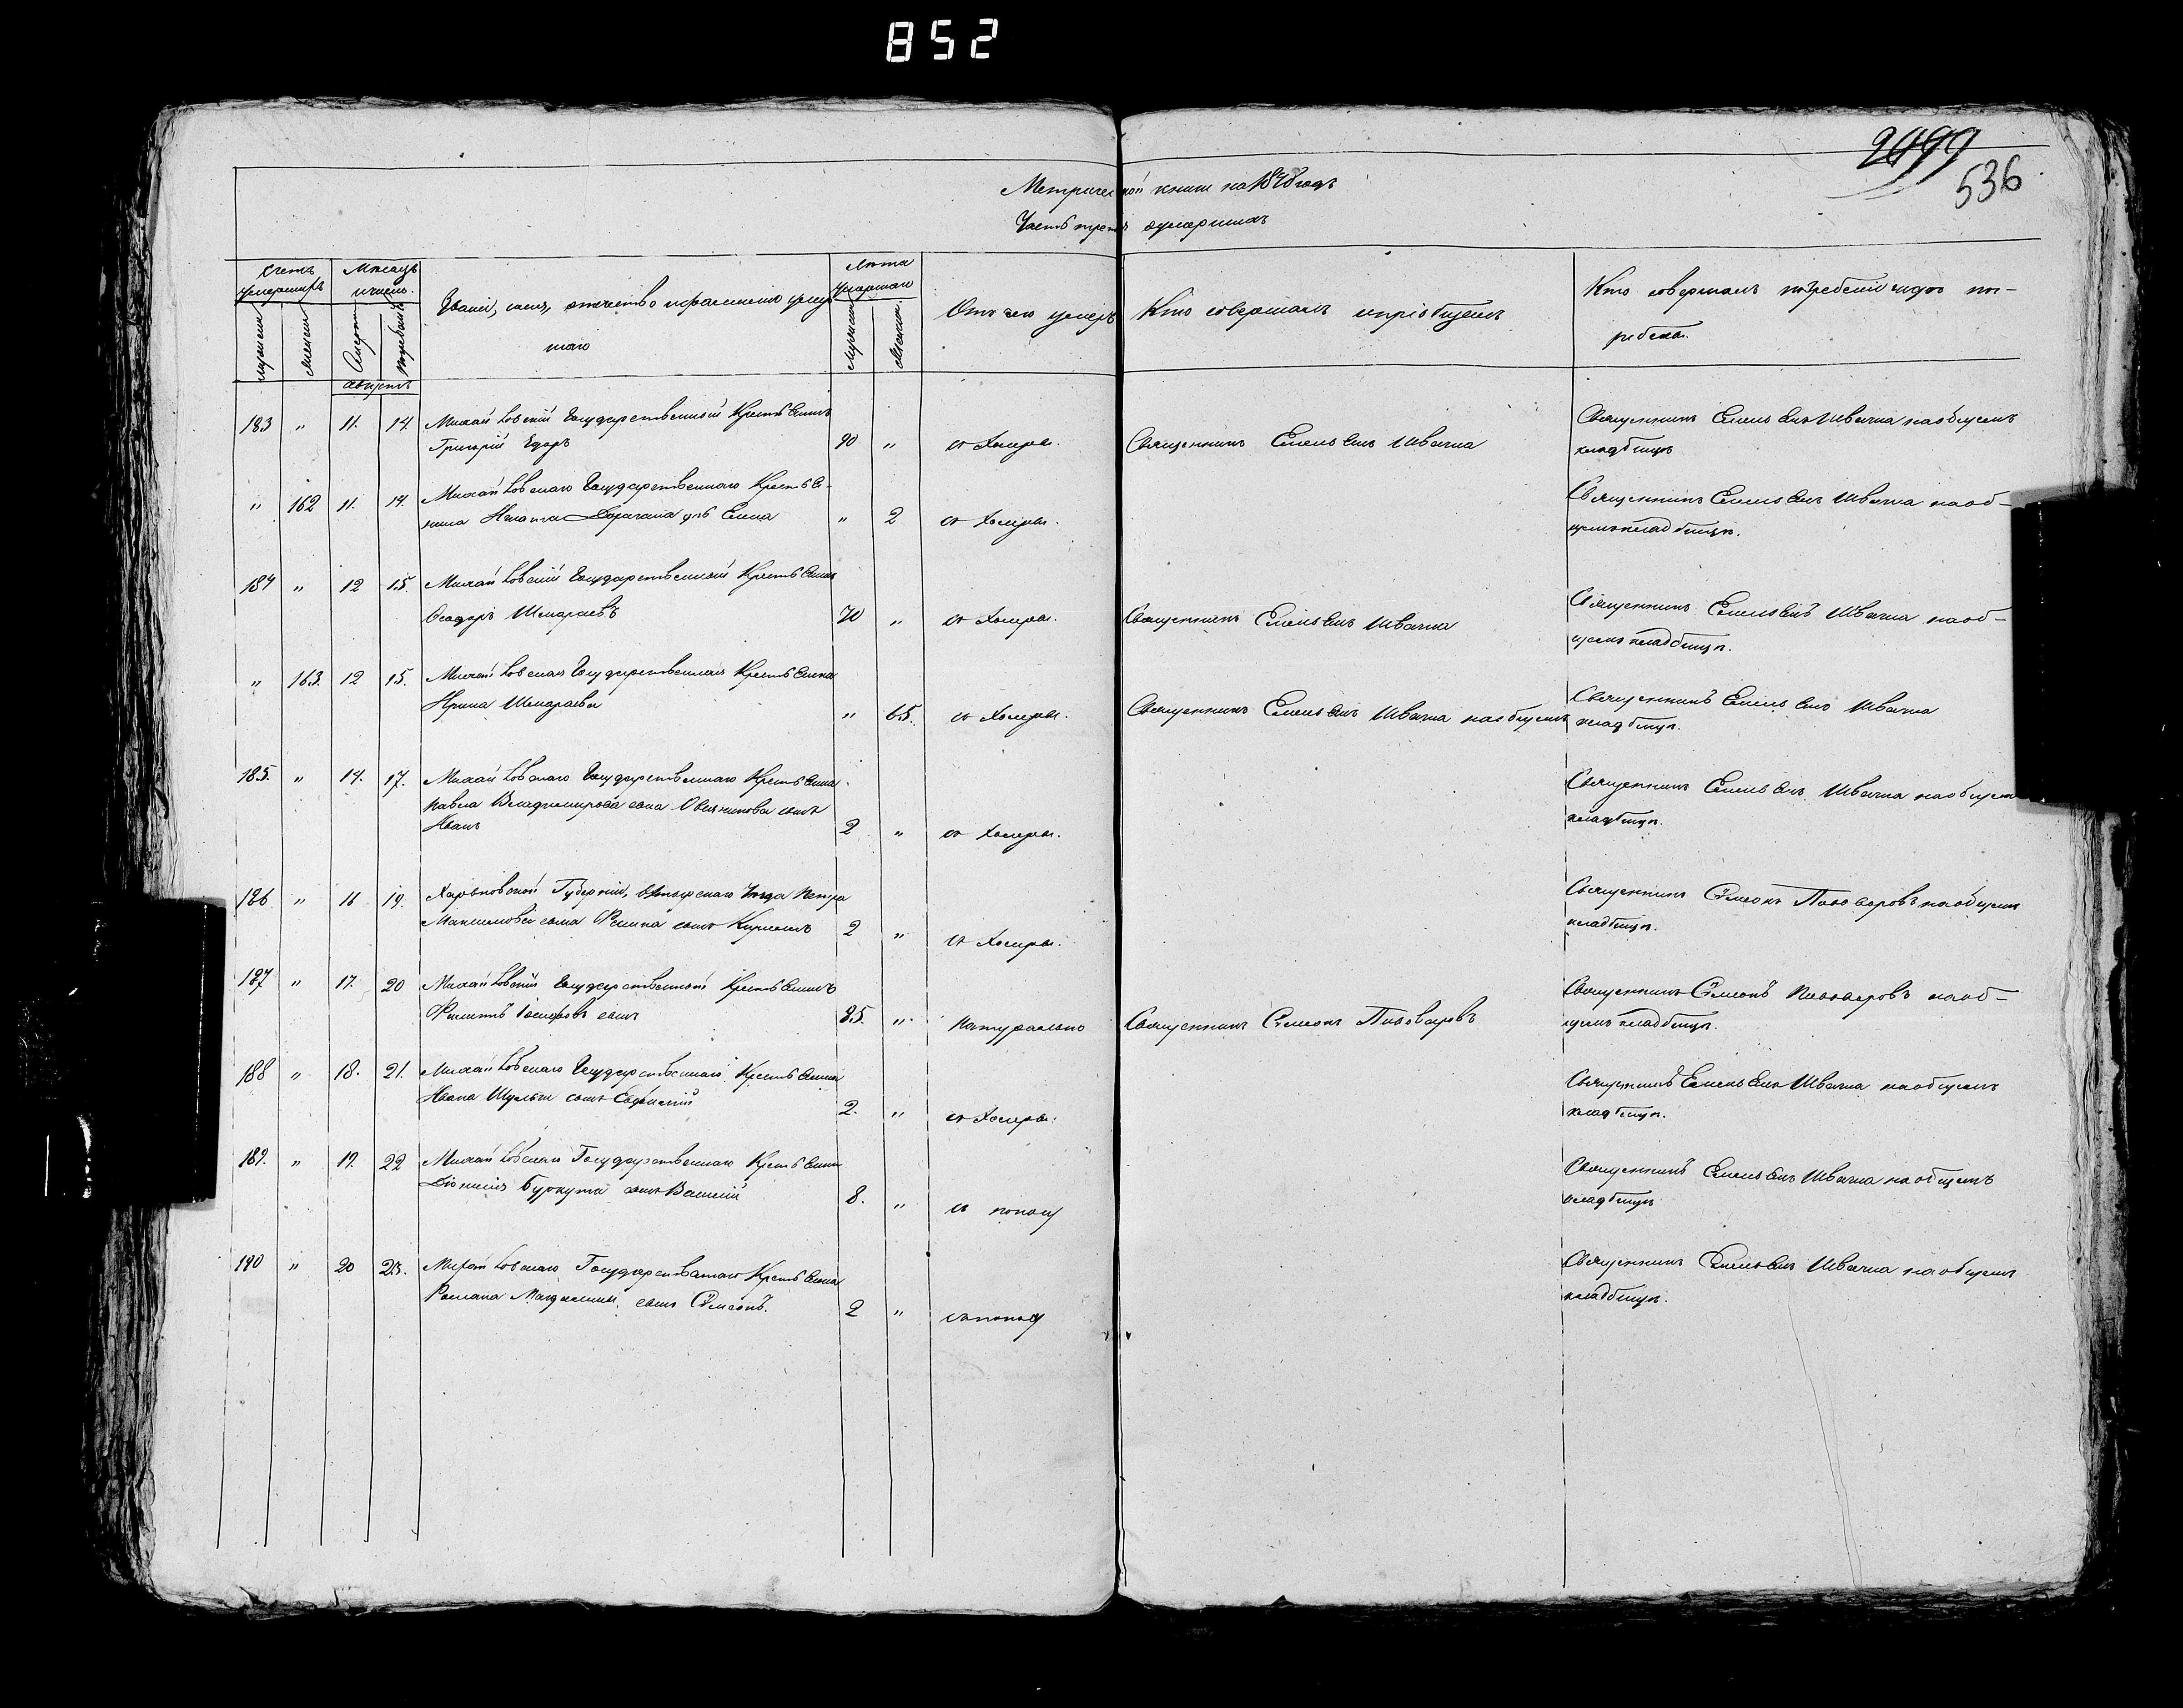 852
2099
536
Метрической книги на 1848 годъ
Часть третья о умершихъ
Счетъ умершихъ
мужеска
женска
Мѣсяцъ и число.
Смерти
погребенія
Званіе, имя, отчество и фамилія умер
шаго
Лѣта умершаго
Мужеска
Женска
Отъ чего умеръ
Кто совершалъ и пріобщалъ
Кто совершалъ погребеніе и гдѣ по-
гребены.
Августъ
183 " 11. 14. Михайловскій Государственный Крестьянинъ
Григорій Едоръ 90 " от Холеры. Священникъ Емельянъ Швачка
Священникъ Емельянъ Швачка на общемъ
кладбищѣ
" 162 11. 14. Михайловскаго Государственнаго Крестья-
нина Игната Дорагана дчь Елена " 2 от Холеры.
Священникъ Емельянъ Швачка на об-
щемъ кладбищѣ.
184 " 12 15. Михайловскій Государственный Крестьянинъ
Феодоръ Шемраевъ 70 " от Холеры. Священникъ Емельянъ Швачка
Священникъ Емельянъ Швачка на об-
щемъ кладбищѣ.
" 163. 12 15. Михайловская Государственная Крестьянка
Ирина Шемраева " 65. от Холеры. Священникъ Емельянъ Швачка на общемъ
Священникъ Емельянъ Швачка
кладбищѣ.
185. " 14. 17. Михайловскаго Государственнаго Крестьянина
Павла Владимирова сына Овсяникова сынъ
Иванъ 2 " от Холеры.
Священникъ Емельянъ Швачка на общемъ
кладбищѣ.
186 " 16 19. Харьковской Губерніи, Ахтырскаго Уѣзда Петра
Максимова сына сынъ 2 " от Холеры.
Священникъ Симеонъ Пивоваровъ на общемъ
кладбищѣ.
187 " 17. 20 Михайловскій Государственный Крестьянинъ
Филиппъ сынъ 85. " натурально Священникъ Симеонъ Пивоваровъ
Священникъ Симеонъ Пивоваровъ на об-
щемъ кладбищѣ.
188 " 18. 21. Михайловскаго Государственнаго Крестьянина
Ивана Шульги сынъ Евфимій 2. " от Холеры.
Священникъ Емельянъ Швачка на общемъ
кладбищѣ.
189. " 19. 22 Михайловскаго Государственнаго Крестьянина
Діонисія Буркута сынъ Василій 8. " от поносу
Священникъ Емельянъ Швачка на общемъ
кладбищѣ
190 " 20 23. Михайловскаго Государственнаго Крестьянина
Романа сынъ Симеонъ. 2 " от поносу
Священникъ Емельянъ Швачка на общемъ
кладбищѣ.